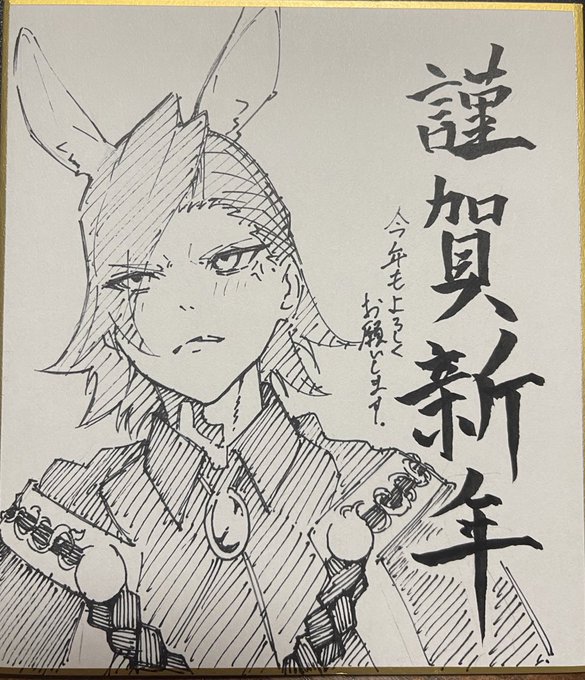 謹賀新年
今年もよろしく
お願いします.